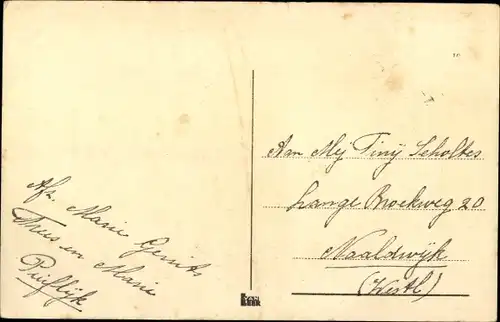 Afz. Marie Gerrits
Theus en Marie
Puiflijk
Aan Mej Tiny Scholtes
Lange Broekweg 20
Naaldwijk
(Westl)